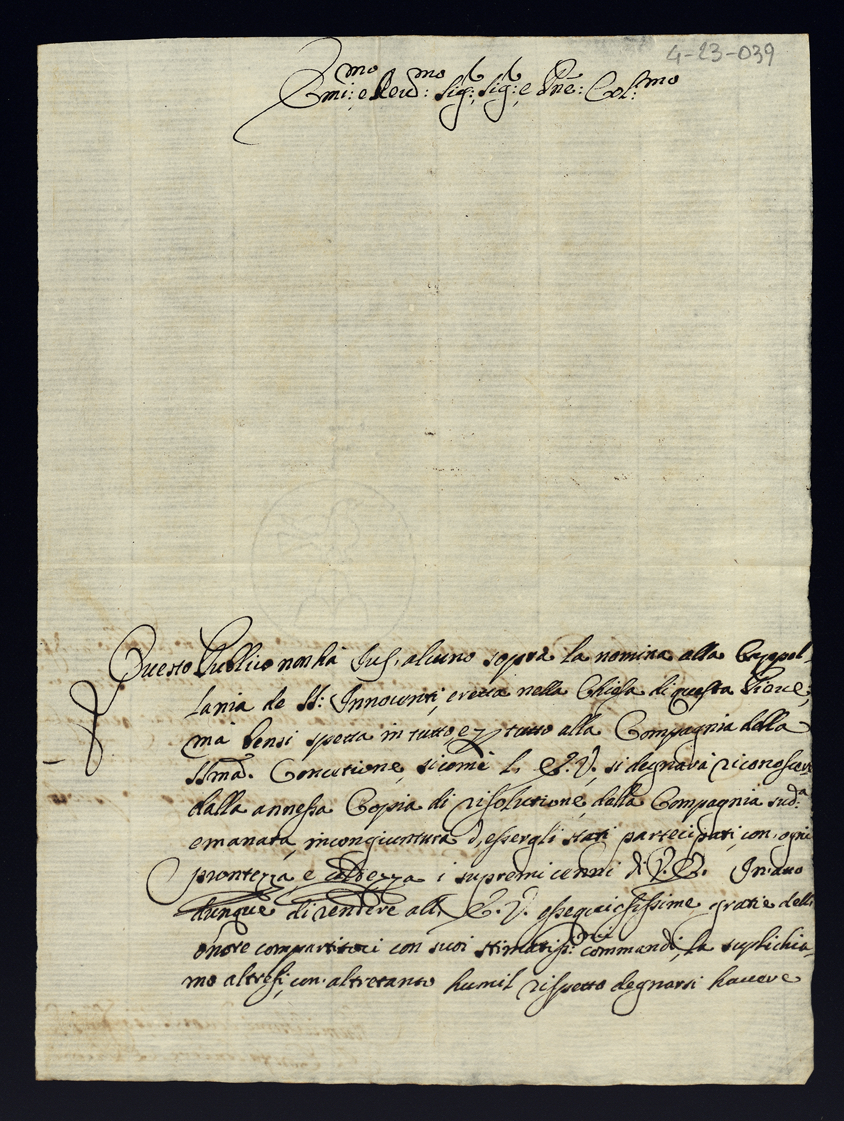 4-23-039
Emi:mo e Reud:mo Sig:r, Sig:r, e Pne: Col:mo
Questo Publico non hà Jus, alcuno soprà la nomina alla Cappel-
lania de SS: Innocenti, eretta nella Chiesa di questa Pieve,
mà bensi spetta in tutto, e p tutto alla Compagnia della
SSma. Concetione, si come L' E. V. si degnarà riconoscere
dalla annessa Copia di risolutione, della Compagnia sud:a
emanata, in congiuntura d'essergli stati partecipati, con, ogni
prontezza, e i supremi cenni di V. E. In atto
dunque di rendere all' E. V. ossequiosissime gratie dell
onore compartitoci con suoi stimatiss:mi commandi, la suplichia-
mo altresi, con, altretanto humil rispetto degnarsi havere